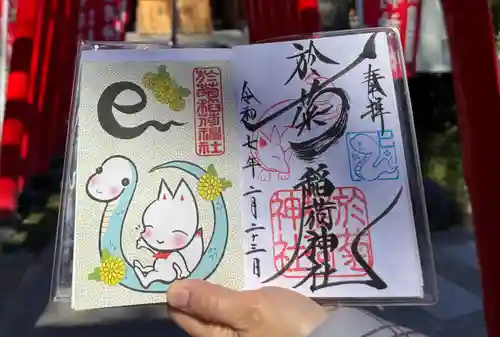 奉拝
於菊稲荷神社
令和七年二月二十三日
於菊稲荷神社
於菊稲荷神社